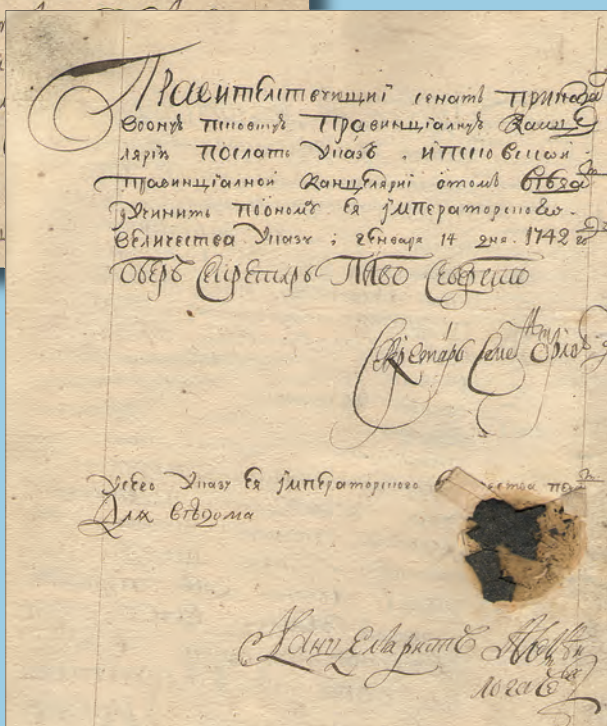 Правителствующиі сенатъ приказа
воону псковскуъ правинцıалнуъ канце
лярıю послать указъ . и псковскои
правинцıалной канцеляриі отомъ вѣда
учинить пооному ея ımператорского
величества указу : генваря 14 дня . 1742 г
оберъ секретарь Павло Севергıнъ
Секретарь Семе Орлов
усего указу ея ımператорского ества пе
Для вѣдома
Канцеляристъ